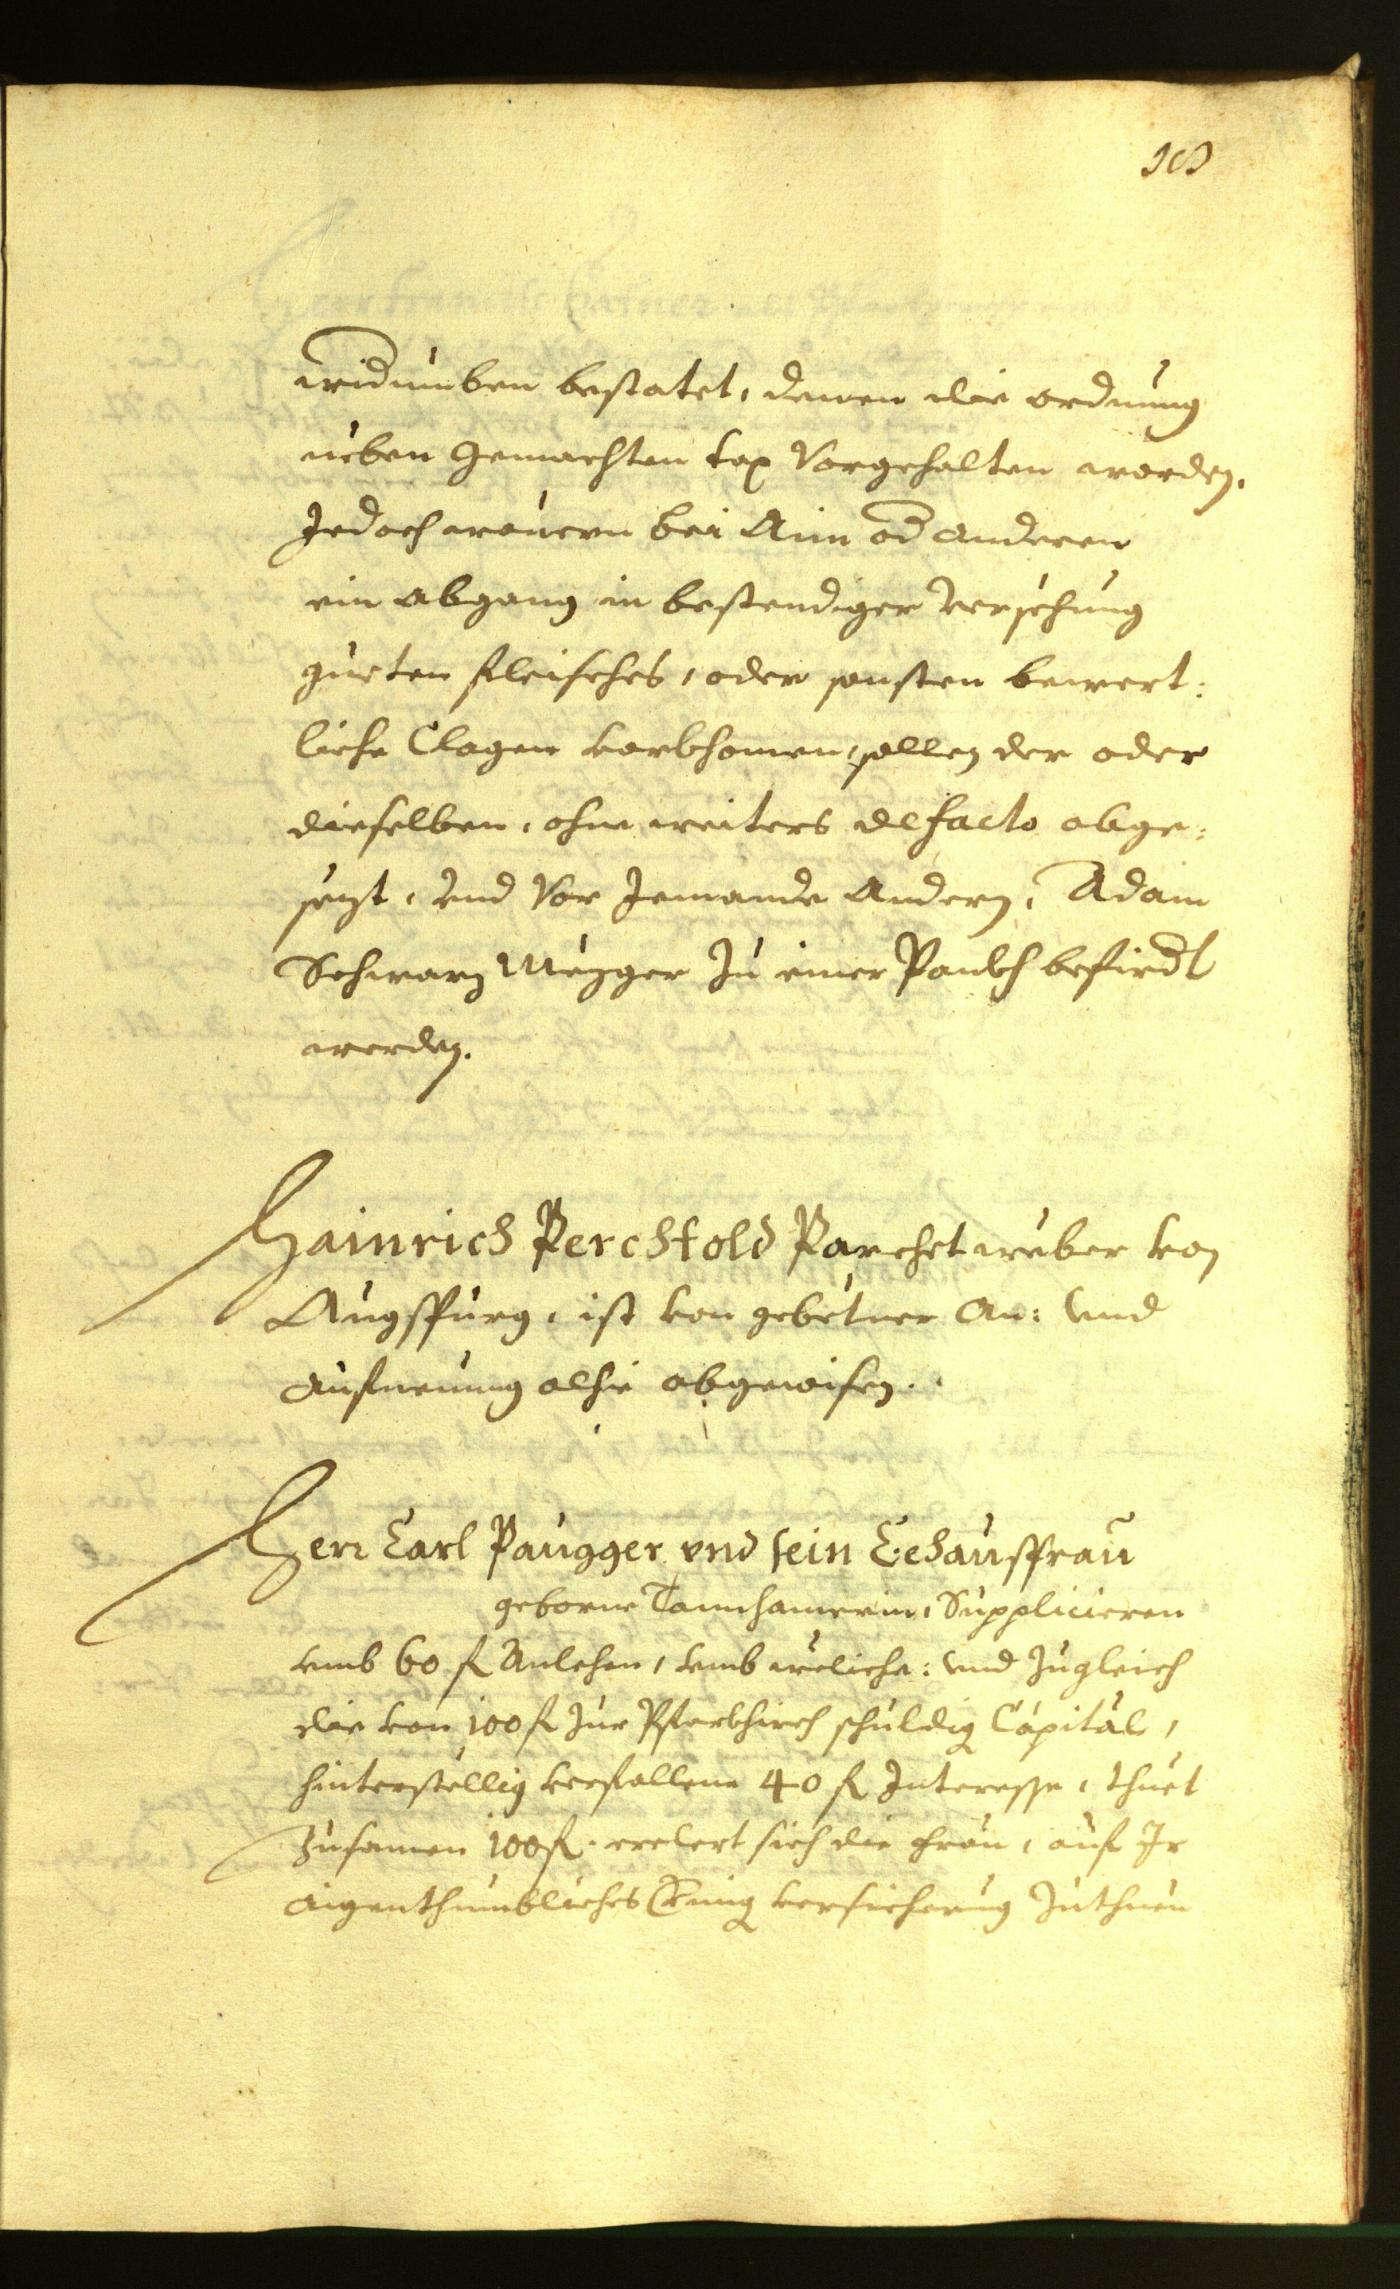 widumben bestatet, denen die ordnung
neben gemachten tax Vorgehalten worden.
Jedoch wouern bei Aim od anderen
ein abgang in bestendiger versehung
gueten fleisches, oder sonsten bewert:
liche Clagen vorkhomen, sollen der oder
dieselben, ohne weiters de facto abge:
sezt, vnd Vor Jemande Andern, Adam
Schwarz Mezger zu einer Pankh befirdt
werden.
Hainrich Perchtold Parchetweber von
Augspurg, ist von gebetner An: vnd
aufnemung alhie abgewisen.
Herr Carl Paugger vnd sein Eehausfrau
geborne Tannhamerin, Supplicieren
vmb 60 fl Anlehen, vmb weliche: vnd zugleich
die von 100 fl zur Pfarrkhirch schuldig Capital,
hinterstellig verfallene 40 fl Interesse, thuet
zusamen 100 fl. erclert sich die Frau, auf Ir
aigenthumbliches versicherung zuthuen